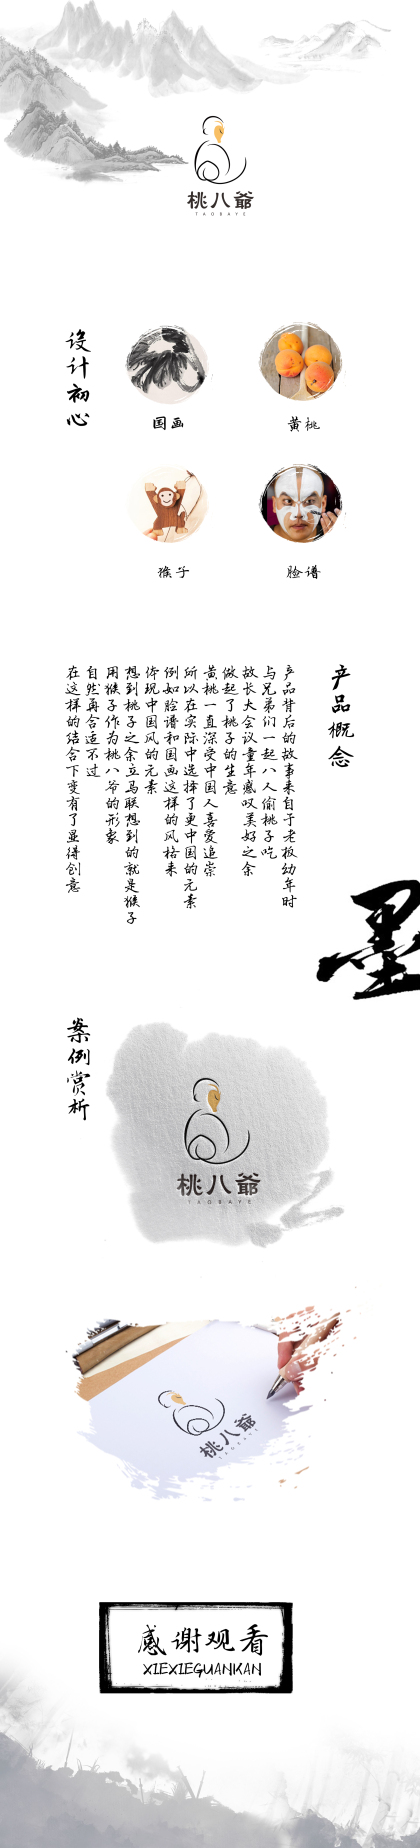 桃八爺
TAOBAYE
设计初心
国画
黄桃
猴子
脸谱
产品概念
产品背后的故事来自于老板幼年时
与兄弟们一起八人偷桃子吃
故长大会议童年感叹美好之余
做起了桃子的生意
黄桃一直深受中国人喜爱追崇
所以在实际中选择了更中国的元素
例如脸谱和国画这样的风格来
体现中国风的元素
想到桃子之余立马联想到的就是猴子
用猴子作为桃八爷的形象
自然再合适不过
在这样的结合下变有了显得创意
墨
案例赏析
桃八爺
TAOBAYE
桃八爺
TAOBAYE
感谢观看
XIEXIEGUANKAN